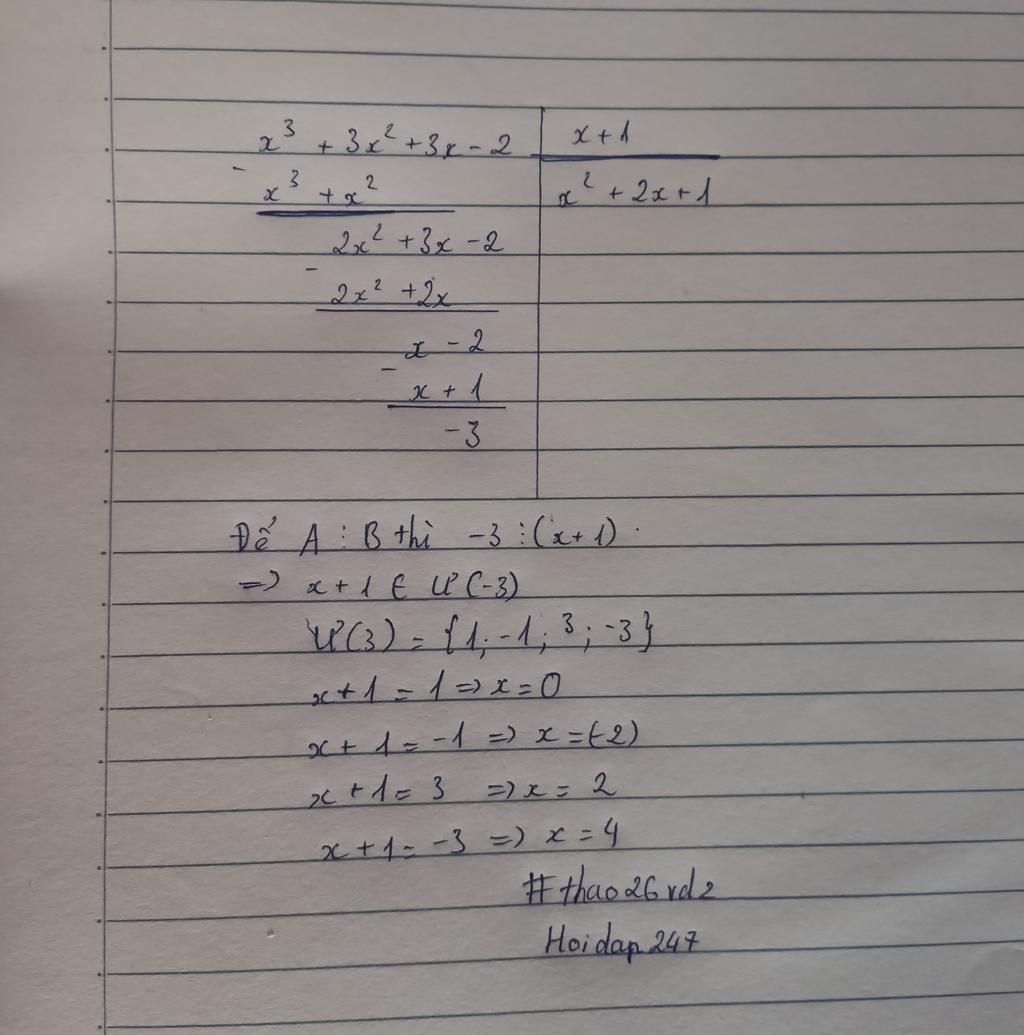 x³ + 3x² + 3x - 2 | x + 1
- x³ + x² | x² + 2x + 1
2x² + 3x - 2
- 2x² + 2x
x - 2
- x + 1
-3
Để A ⋮ B thì -3 ⋮ (x + 1)
=> x + 1 ∈ Ư(-3)
Ư(3) = {1; -1; 3; -3}
x + 1 = 1 => x = 0
x + 1 = -1 => x = (-2)
x + 1 = 3 => x = 2
x + 1 = -3 => x = 4
#thao26rd2
Hoidap247